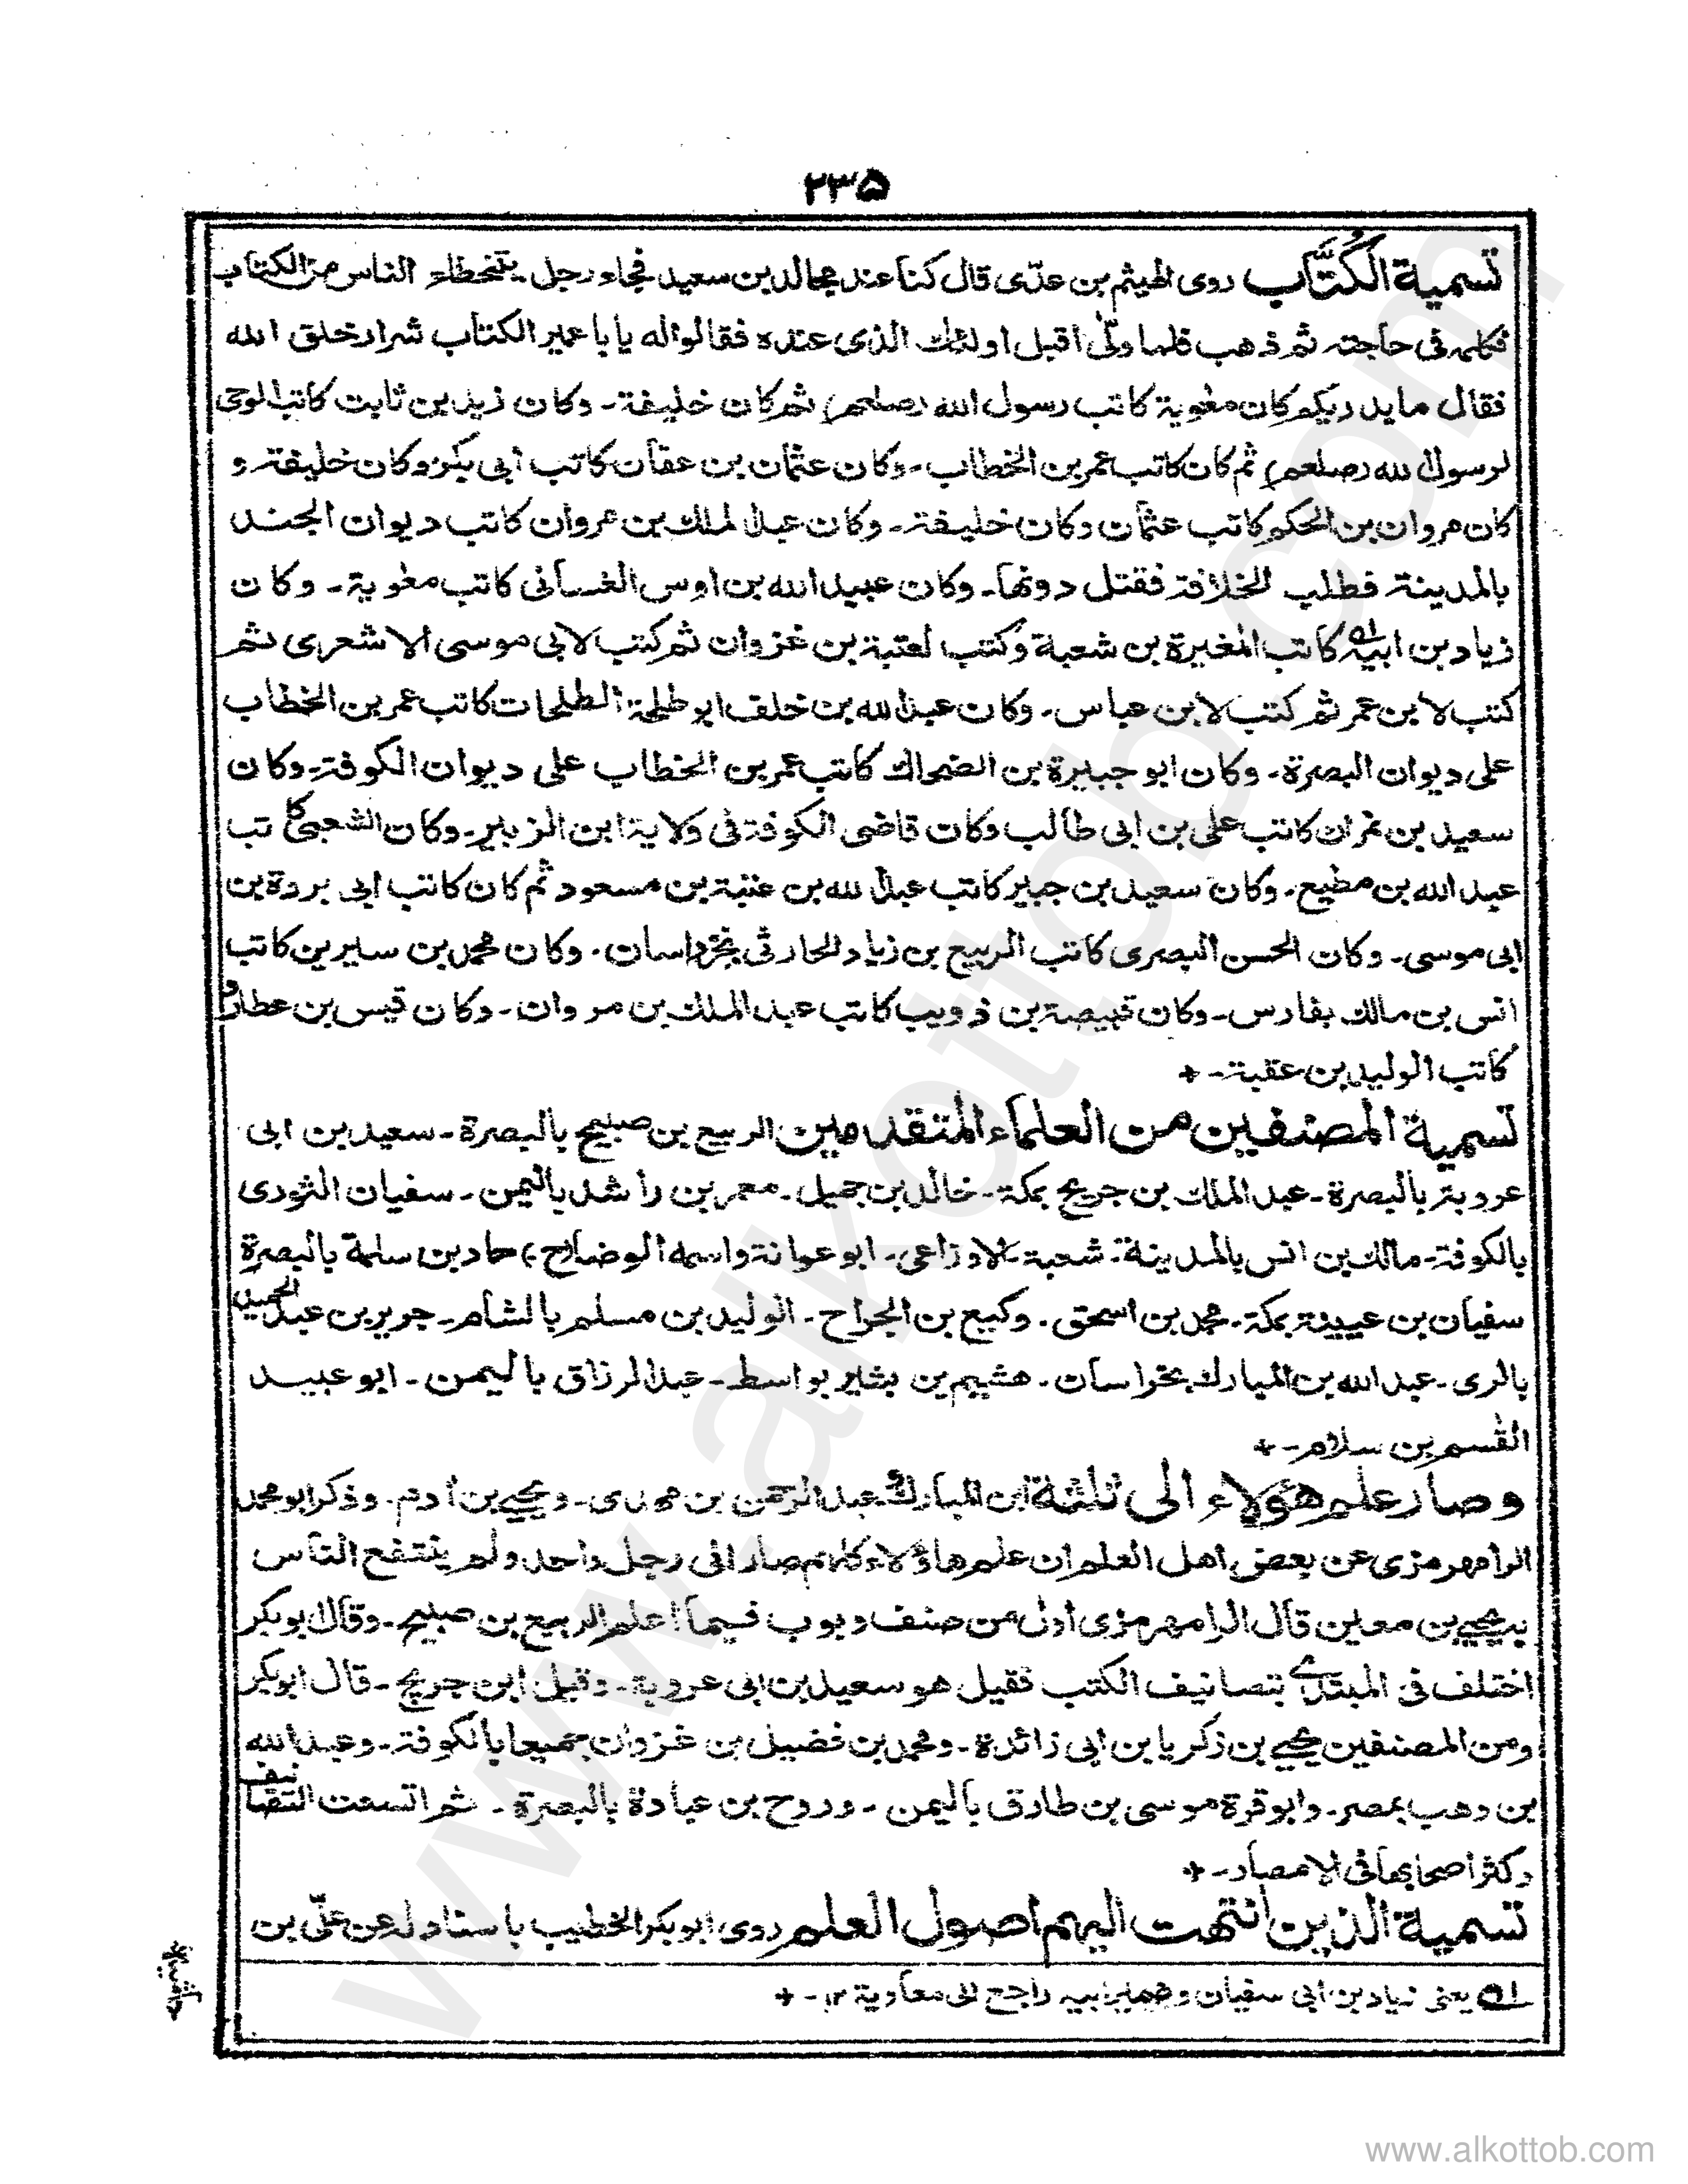 ٢٣۵
تسمية الكُتَّاب روى الهيثم بن عدّى قال كنا عند مجالد بن سعيد فجاء رجل يتخطاء الناس من الكتاب
فكلمه فى حاجته ثم ذهب فلما ولّى اقبل اولئك الذى عنده فقالوا له يا با عمير الكتاب شرار خلق الله
فقال ما يدريكم كان معٰوية كاتب رسول الله (صلعم) ثم كان خليفة۔ وكان زيد بن ثابت كاتب الوحى
لرسول الله (صلعم) ثم كان كاتب عمر بن الخطاب۔ وكان عثمان بن عفان كاتب ابى بكر وكان خليفة و
كان مروان بن الحكم كاتب عثمان وكان خليفة۔ وكان عبد الملك بن مروان كاتب ديوان الجند
بالمدينة فطلب الخلافة فقتل دونها۔ وكان عبيد الله بن اوس الغسانى كاتب معٰوية۔ وكان
زياد بن ابيه كاتب المغيرة بن شعبة وكتب لعتبة بن غزوان ثم كتب لابى موسى الاشعرى ثم
كتب لابن عمر ثم كتب لابن عباس۔ وكان عبد الله بن خلف ابو طلحة الطلحات كاتب عمر بن الخطاب
على ديوان البصرة۔ وكان ابو جبيرة بن الضحاك كاتب عمر بن الخطاب على ديوان الكوفة۔ وكان
سعيد بن نمران كاتب على بن ابى طالب وكان قاضى الكوفة فى ولاية ابن الزبير۔ وكان الشعبى كاتب
عبد الله بن مطيع۔ وكان سعيد بن جبير كاتب عبد الله بن عتبة بن مسعود ثم كان كاتب ابى بردة بن
ابى موسى۔ وكان الحسن البصرى كاتب الربيع بن زياد الحارثى بخراسان۔ وكان محمد بن سيرين كاتب
انس بن مالك بفارس۔ وكان قبيصة بن ذويب كاتب عبد الملك بن مروان۔ وكان قيس بن عطارد
كاتب الوليد بن عقبة۔ +
تسمية المصنفين من العلماء المتقدمين الربيع بن صبيح بالبصرة۔ سعيد بن ابى
عروبة بالبصرة۔ عبد الملك بن جريج بمكة۔ خالد بن جميل۔ معمر بن راشد باليمن۔ سفيان الثورى
بالكوفة۔ مالك بن انس بالمدينة۔ شعبة۔ الاوزاعى۔ ابو عوانة واسمه الوضاح، حماد بن سلمة بالبصرة
سفيان بن عيينة بمكة۔ محمد بن اسحق۔ وكيع بن الجراح۔ الوليد بن مسلم بالشام۔ جرير بن عبد الحميد
بالرى۔ عبد الله بن المبارك بخراسان۔ هشيم بن بشير بواسط۔ عبد الرزاق باليمن۔ ابو عبيد
القٰسم بن سلام۔ +
وصار علم هؤلاء الى ثلثة ابن المبارك وعبد الرحمن بن مهدى۔ ويحيى بن ادم۔ وذكر ابو محمد
الرامهرمزى عن بعض اهل العلم ان علم هاؤلاء كلهم صار الى رجل واحد ولم ينتفع الناس
به يحيى بن معين قال الرامهرمزى اول من صنف وبوب فيما اعلم الربيع بن صبيح۔ وقال ابو بكر
اختلف فى المبتدى بتصانيف الكتب فقيل هو سعيد بن ابى عروبة۔ وقيل ابن جريج۔ قال ابو بكر
ومن المصنفين يحيى بن زكريا بن ابى زائدة۔ ومحمد بن فضيل بن غزوان جميعا بالكوفة۔ وعبد الله
بن وهب بمصر۔ وابو قرة موسى بن طارق باليمن۔ وروح بن عبادة بالبصرة۔ ثم اتسعت التصانيف
وكثر اصحابها فى الامصار۔ +
تسمية الذين انتهت اليهم اصول العلم روى ابو بكر الخطيب باسناد له عن علىّ بن
حاشيه
له يعنى زياد بن ابى سفيان وضمير ابيه راجع الى معاوية ١٢۔ +
www.alkottob.com
www.alkottob.com